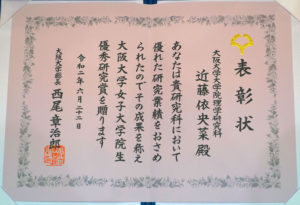 表彰状
大阪大学大学院理学研究科
近藤依央菜殿
あなたは貴研究科において
優れた研究業績をおさめ
られたのでその成果を称え
大阪大学女子大学院生
優秀研究賞を贈ります
令和二年六月二十二日
大阪大学総長 西尾章治郎